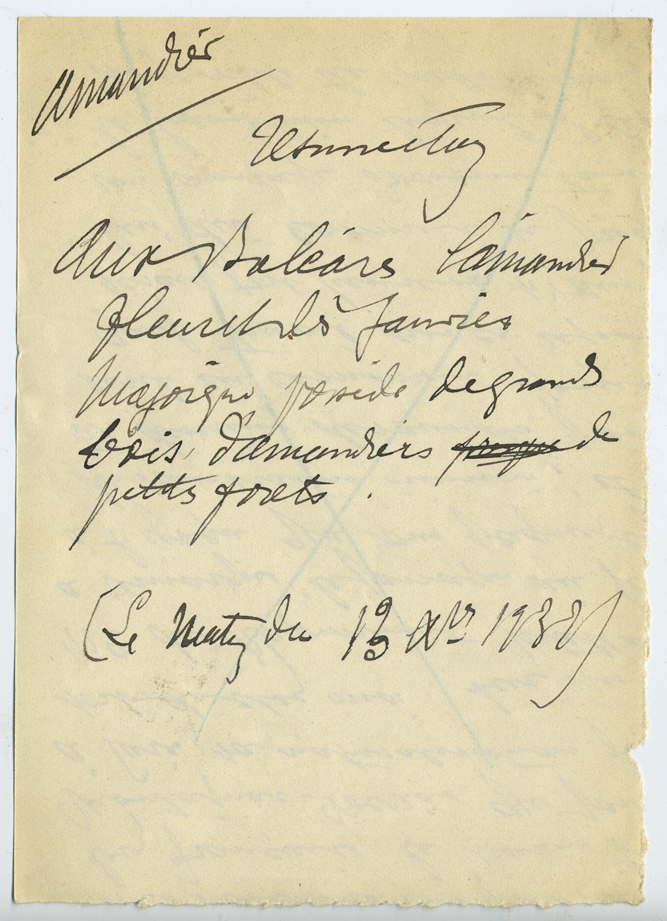 Amandier
Aux Baléars l'amandier
fleurit dès Janvier
Majorque possède de grands
bois d'amandiers de
petits forets.
(Le Matin du 13 Xbre 1938)